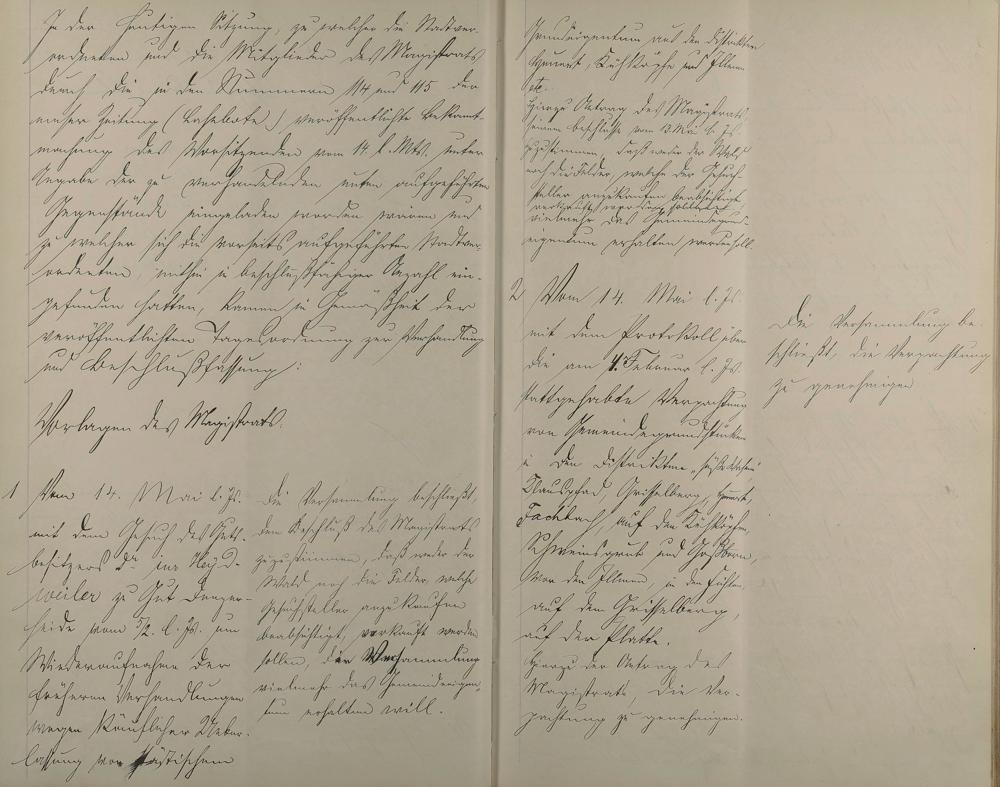 In der heutigen Sitzung, zu welcher die Stadtver-
ordneten und die Mitglieder des Magistrats
durch die in den Nummern 114 und 115 der
Zeitung (Lahnbote) veröffentlichte Bekannt-
machung des Vorsitzenden vom 14. l. Mts. unter
Angabe der zu verhandelnden unten aufgeführten
Gegenstände eingeladen worden waren und
zu welcher sich die vorseits aufgeführten Stadtver-
ordneten, mithin in beschlußfähiger Anzahl ein-
gefunden hatten, kamen in Gemäßheit der
veröffentlichten Tagesordnung zur Verhandlung
und Beschlußfassung:
Vorlagen des Magistrats.
1 Vom 14. Mai l. Js.
mit dem Gesuch des Guts-
besitzers
weiler zu Gut Denzer-
heide vom 5/2. l. Js. um
Wiederaufnahme der
früheren Verhandlungen
wegen käuflicher Ueber-
lassung von städtischem
Die Versammlung beschließt,
dem Beschluß des Magistrats
zuzustimmen, daß weder der
Wald noch die Felder, welche
Gesuchsteller anzukaufen
beabsichtigt, verkauft werden
sollen, die Versammlung
vielmehr das Gemeindeeigen-
tum erhalten will.
Grundeigentum aus den Distrikten
und
etc.
Hierzu Antrag des Magistrats
seinem Beschlusse vom 13. Mai l. Js.
zuzustimmen, daß weder der Wald
noch die Felder, welche der Gesuch-
steller anzukaufen beabsichtigt
verkauft werden sollen,
vielmehr das Gemeindegrund-
eigentum erhalten werden soll.
2 Vom 14. Mai l. Js.
mit dem Protokoll über
die am 4. Februar l. Js.
stattgehabte Verpachtung
von Gemeindegrundstücken
in den Distrikten
Klauspfad, Grisselberg,
Fachbach, auf den
Schweinsgrub und
vor den Ulmen, in den Fichten,
auf dem Grisselberg,
auf der Platte.
Hierzu der Antrag des
Magistrats die Ver-
pachtung zu genehmigen.
Die Versammlung be-
schließt, die Verpachtung
zu genehmigen